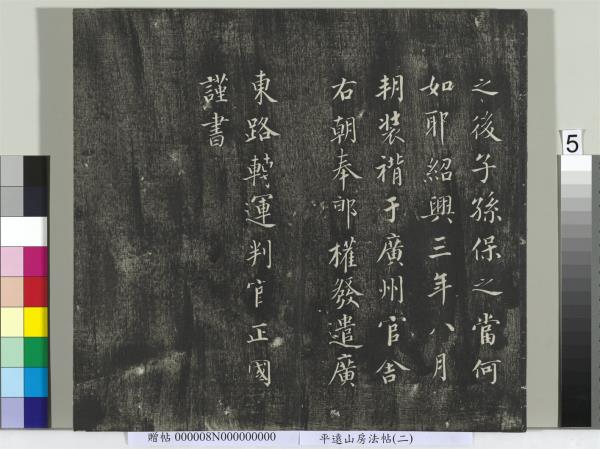 之後子孫保之當何
如耶紹興三年八月
朔裝褙于廣州官舍
右朝奉郎權發遣廣
東路轉運判官正國
謹書
5
贈帖 000008N000000000
平遠山房法帖(二)